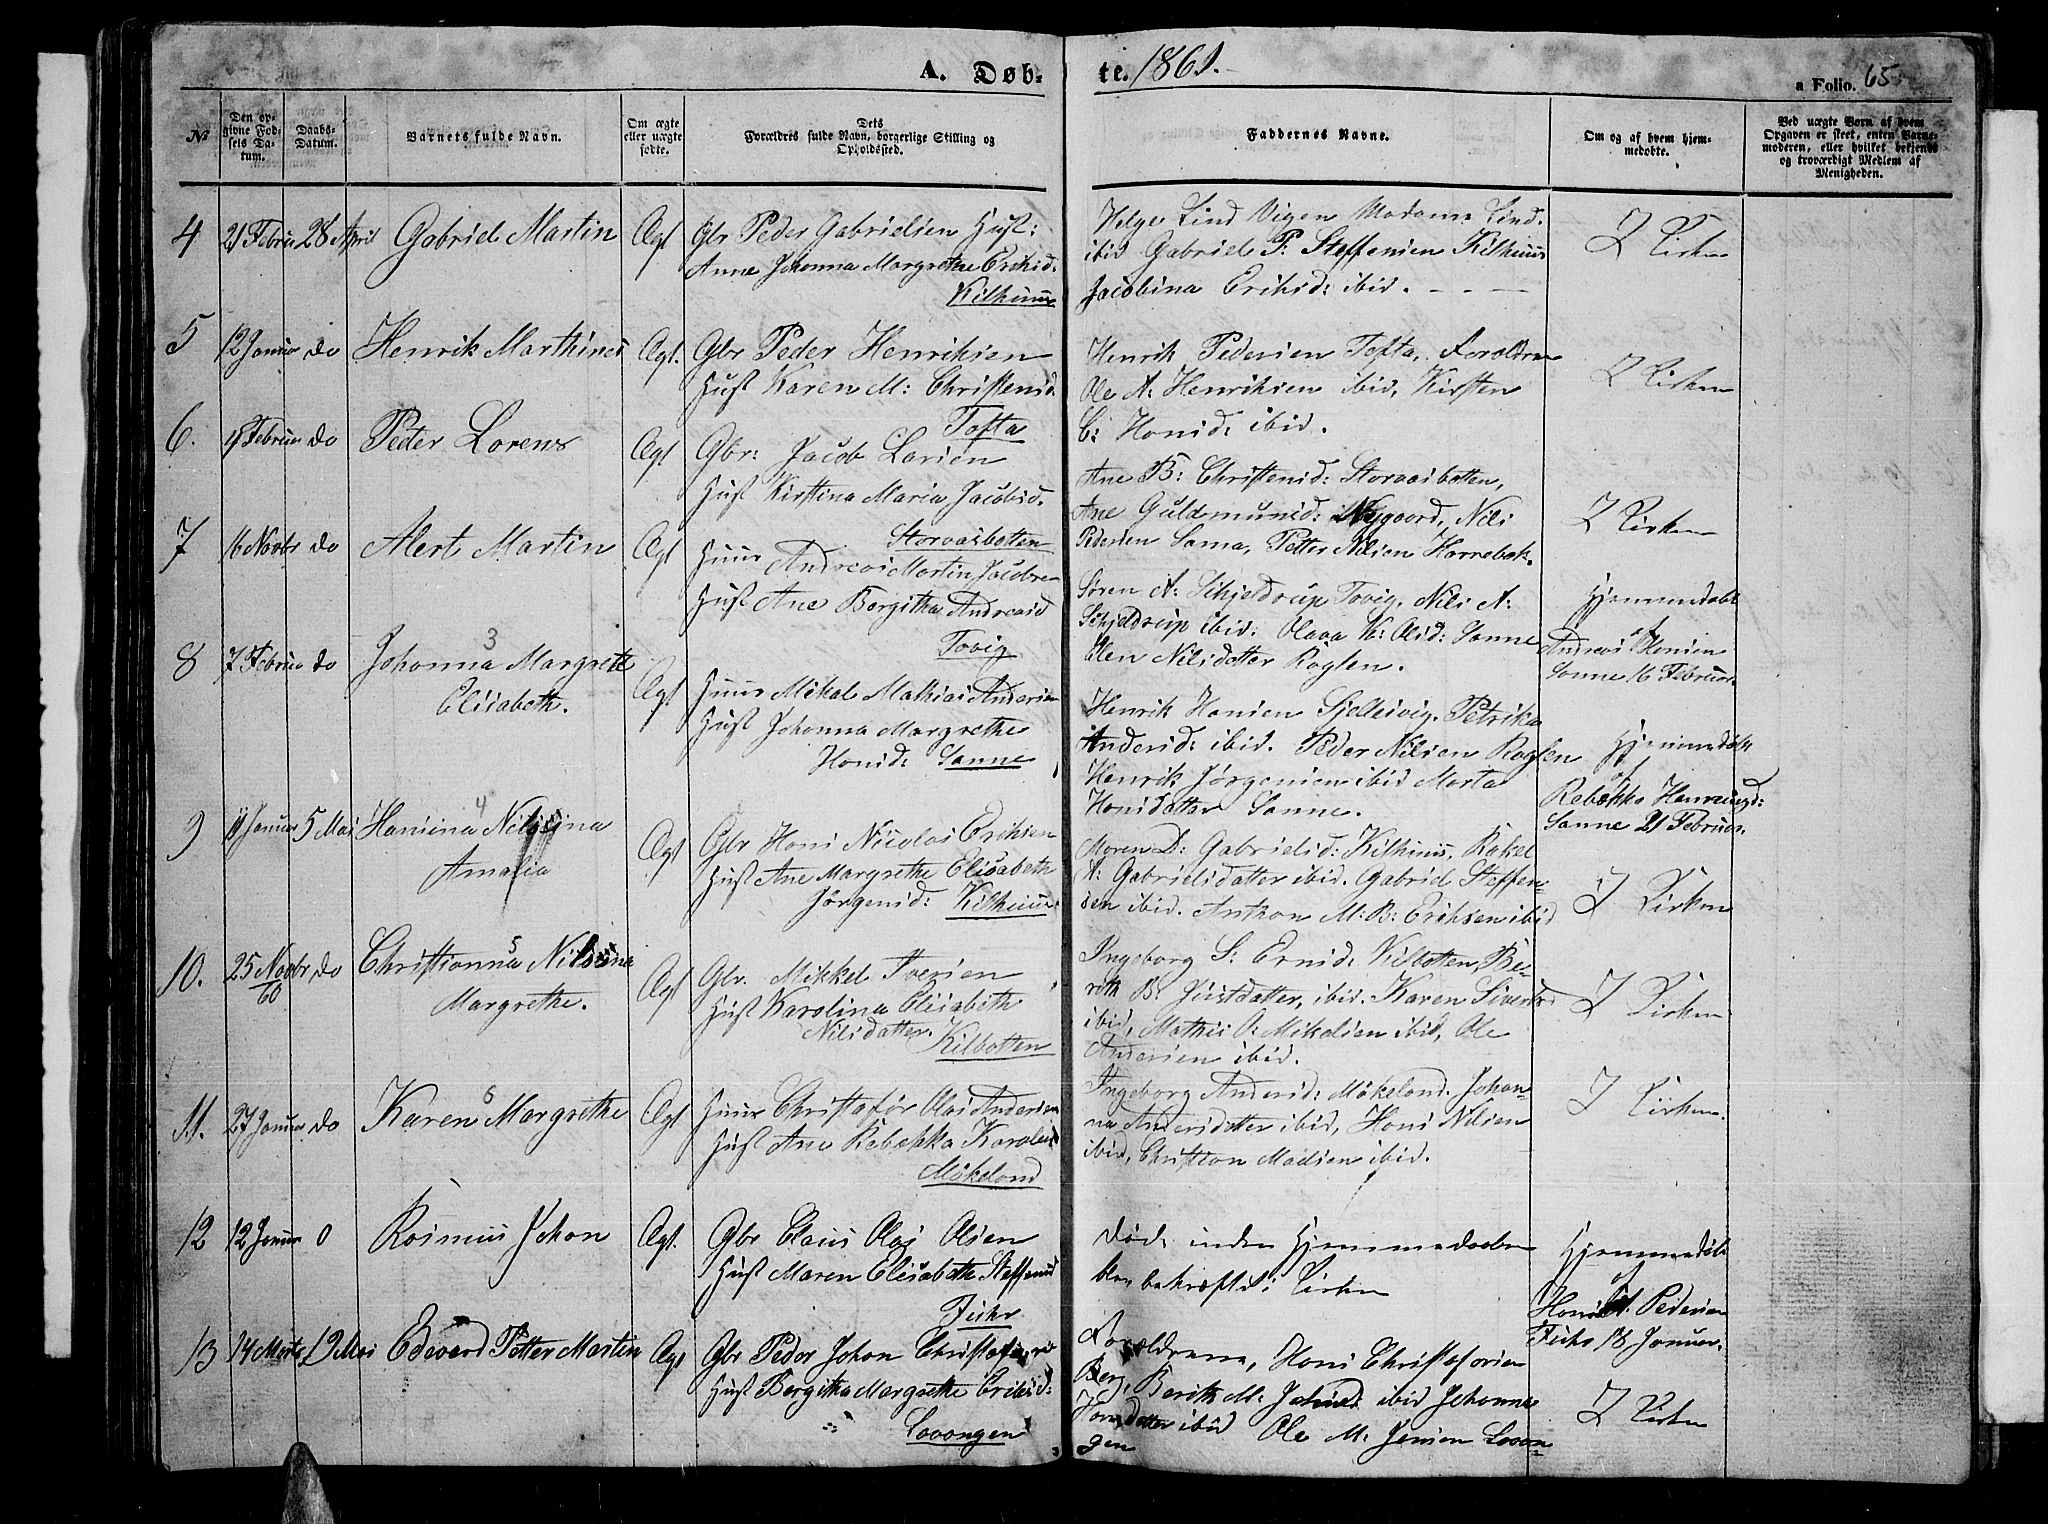 A. Døb-
te. 1861.
a Folio. 65
№
Den op-
givne Fød-
sels Da-
tum.
Daabs-
Datum.
Barnets fulde Navn.
Om ægte
eller uægte
fødte.
Dets
Forældres fulde Navn, borgerlige Stilling og
Opholdssted.
Faddernes Navne.
Om og af hvem hjem-
medøbte.
Ved uægte Børn af hvem
Opgaven er skeet, enten Barne-
moderen, eller hvilket bekjendt
og troværdigt Medlem af
Menigheden.
4 21 Februar 28 April Gabriel Martin Ægt
Gbr Peder Gabrielsen Hust:
Anne Johanna Margrethe Eriksd:
Kilhuus
Helge Lind Vigen Madame Lind
ibid Gabriel P: Steffensen Kilhuus
Jacobina Eriksd: ibid. - - -
I Kirken
5 12 Januar do Henrik Marthines Ægt.
Gbr Peder Henriksen
Hust Karen M: Christensd
Tofta
Henrik Pedersen Tofta, Forældrene
Ole A: Henriksen ibid, Kirsten
C: Hansd: ibid.
I Kirken
6. Februar do Peder Lorens Ægt
Gbr: Jacob Larsen
Hust Kirstina Maria Jacobsd.
Storvasbotten
Ane B: Christensd: Storvasbotten,
Ane Guldmunsd: Nygaard, Nils
Pedersen Sama, Petter Nilsen Horrebek.
I Kirken
7 16 Novbr do Alert Martin Ægt
Huus Andreas Martin Jacobsen
Hust Ane Bergitha Andreasd
Tovig
Søren A: Schjeldrup Tovig. Nils A:
Schjeldrup ibid: Olava K: Olsd: Sanne
Elen Nilsdatter Roglen.
Hjemmedøbt
af
Andreas Hansen
Sanne 16 Februar.
8 7 Februar do Johanna 3 Margrete
Elisabeth. Ægt
Huus Mikal Mathias Andersen
Hust Johanna Margrethe
Hansd: Sanne
Henrik Hansen Sjellesvig. Petrika
Andersd: ibid. Peder Nilsen Roglen
Henrik Jørgensen ibid Marta
Hansdatter Sanne.
Hjemmedøbt
af
Rebekka Henningsd:
Sanne 21 Februar.
9 Januar 5 Mai Hansina 4 Nilsina
Amalia Ægt
Gbr Hans Nicolai Eriksen
Hust Ane Margrethe Elisabeth
Jørgensd: Kilhuus
Maren D: Gabrielsd: Kilhuus, Rakel
A: Gabrielsdatter ibid. Gabriel Steffen-
sen ibid. Anthon M: B: Eriksen ibid
I Kirken
10. 25 Novbr/60 do Christianna 5 Nilsina
Margrethe. Ægt
Gbr. Mikkel Iversen
Hust Karolina Elisabeth
Nilsdatter. Kilbotten
Ingeborg S: Ernsd: Kilbotten, Be-
rith B: Justdatter, ibid. Karen Sivertsd
ibid, Mathis O: Mikelsen ibid, Ole
Andersen ibid.
I Kirken
11. 27 Januar do Karen 6 Margrethe Ægt
Huus Christofør Olai Andersen
Hust Ane Rebekka Karolius
Møkeland
Ingeborg Andersd: Møkeland. Johan-
na Andersdatter ibid, Hans Nilsen
ibid, Christian Madsen ibid.
I Kirken.
12 12 Januar 0 Rasmus Johan Ægt.
Gbr Claus Olai Olsen
Hust Maren Elisabeth Steffensd
Fiske
Døde inden Hjemmedaaben
blev bekræftet i Kirken
Hjemmedøbt
af
Hans A. Pedersen
18 Januar.
13 14 Marts 12 Mai Edevard Petter Martin Ægt
Gbr Peder Johan Christofersen
Hust Bergitha Margrethe Eriksd:
Lovangen
Forældrene, Hans Christofersen
Berg, Berith M: ibid Johanna
Hansdatter ibid Ole M: Jensen Lovan-
gen
I Kirken